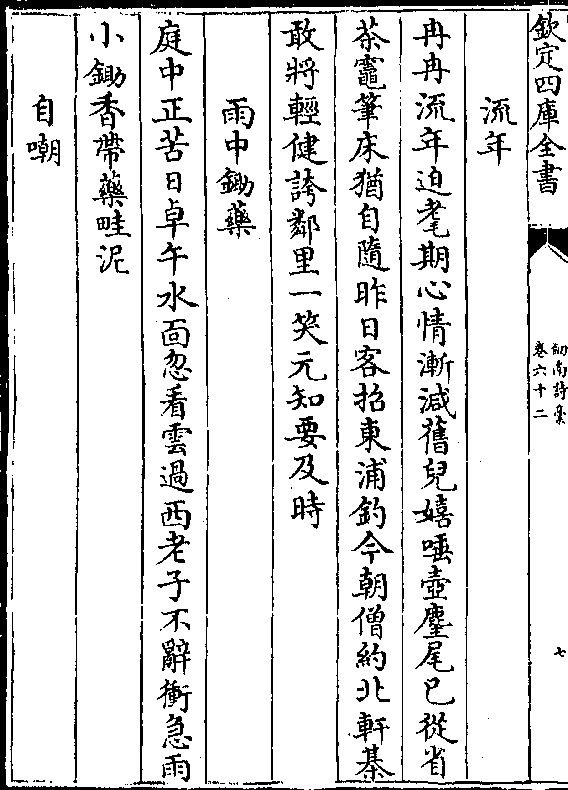 欽定四庫全書
劍南詩稾
卷六十二
七
流年
冉冉流年迫耄期心情漸減舊兒嬉唾壺麈尾已從省
茶竈筆床猶自隨昨日客招東浦釣今朝僧約北軒棊
敢將輕健誇鄰里一笑元知要及時
雨中鋤藥
庭中正苦日卓午水面忽看雲過西老子不辭衝急雨
小鋤香帶藥畦泥
自嘲